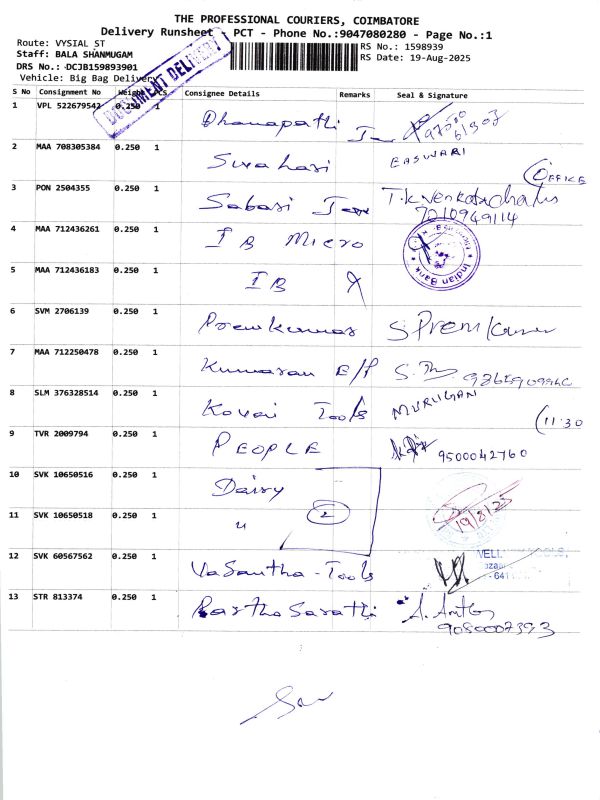 THE PROFESSIONAL COURIERS, COIMBATORE
Delivery Runsheet - PCT - Phone No.:9047080280 - Page No.:1
Route: VYSIAL ST
Staff: BALA SHANMUGAM
DRS No.: DCJB159893901
Vehicle: Big Bag Delivery
RS No.: 1598939
RS Date: 19-Aug-2025
DOCUMENT DELIVERY
S No Consignment No Weight PCS Consignee Details Remarks Seal & Signature
1 VPL 522679542 0.250 1 Dhanapathi
2 MAA 708305384 0.250 1 Sivahari EASWARI
(OFFICE
3 PON 2504355 0.250 1 Sabari T.K Venkatachalam
7010949114
4 MAA 712436261 0.250 1 I B Micro
Indian Bank
5 MAA 712436183 0.250 1 I B
6 SVM 2706139 0.250 1 Premkumar S Prem Kumar
7 MAA 712250478 0.250 1 Kumaran E/P
8 SLM 376328514 0.250 1 Kovai Tools MURUGAN
(11:30
9 TVR 2009794 0.250 1 PEOPLE 9500042760
10 SVK 10650516 0.250 1 Daisy
2
19/8/25
11 SVK 10650518 0.250 1 "
12 SVK 60567562 0.250 1 Vasantha - Tools
13 STR 813374 0.250 1 Partha Sarathi
9080007393